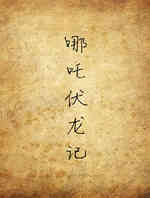 哪吒伏龙记